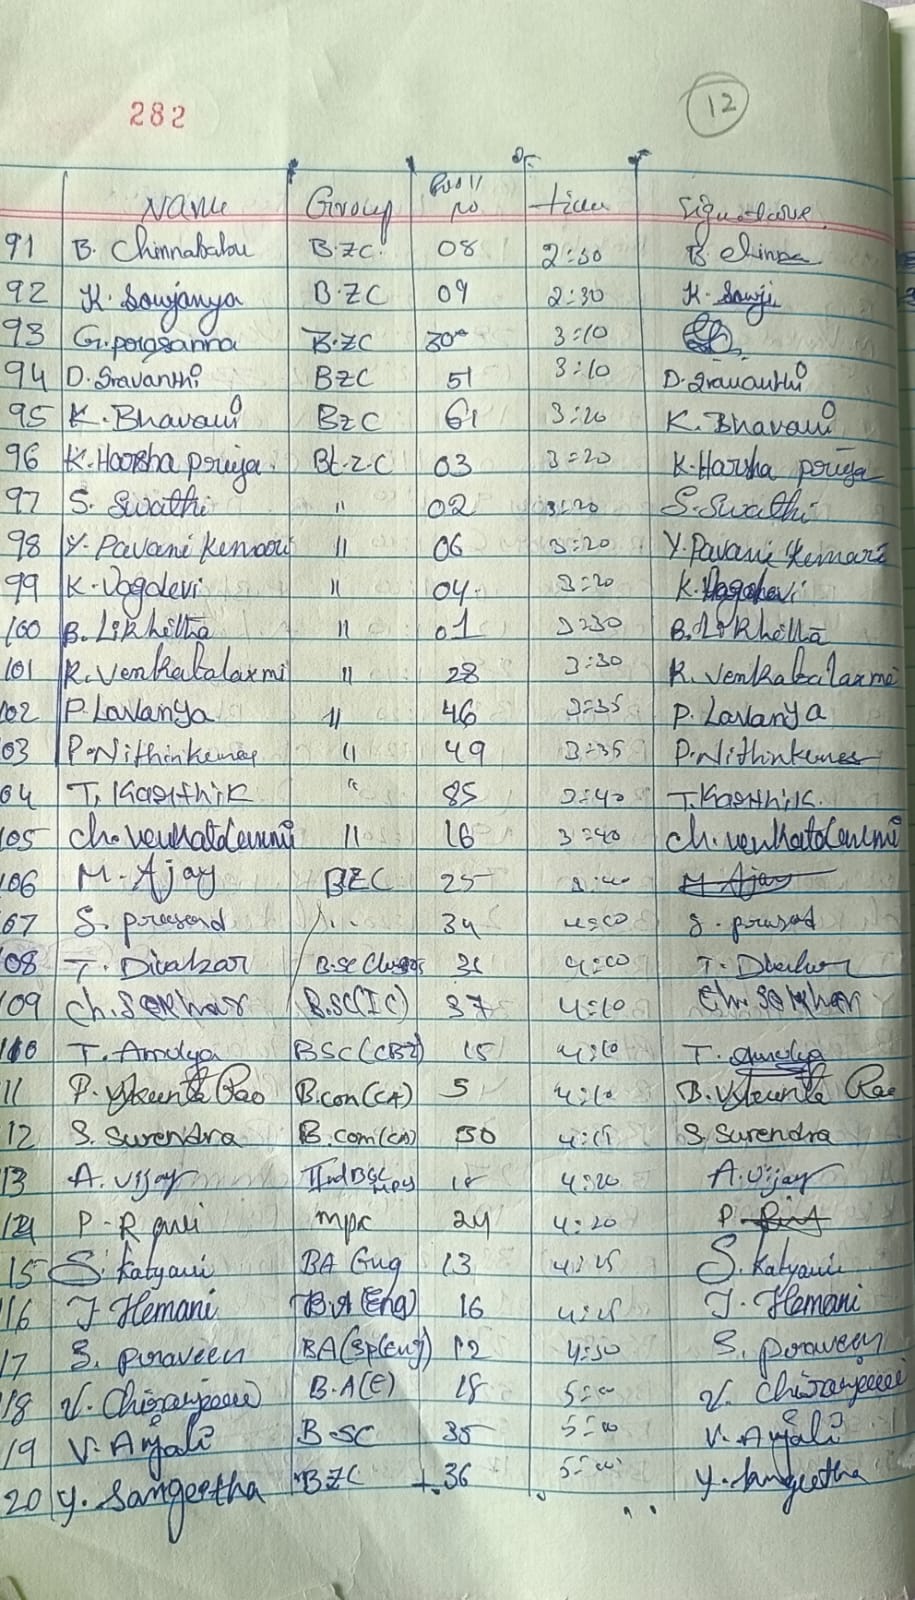 282 12
Name Group Roll no time Signature
91 B. Chinnababu B.ZC. 08 2:30 B. Chinna
92 K. Sowjanya B.ZC 09 2:30 K. Sowji
93 G. porasanna B.ZC 30 3:10
94 D. Sravanthi BZC 51 3:10 D. Sravanthi
95 K. Bhavani BZC 61 3:20 K. Bhavani
96 K. Harsha priya. Bt.Z.C 03 3:20 K. Harsha priya
97 S. Swathi " 02 3:20 S. Swathi
98 Y. Pavani Kumari " 06 3:20 Y. Pavani Kumari
99 K. Vagdevi " 04 3:20 K. Vagdevi
100 B. Likhitha " 01 3:30 B. Likhitha
101 R. Venkatalaxmi " 28 3:30 R. Venkatalaxmi
102 P. Lavanya " 46 3:35 P. Lavanya
03 P. Nithinkumar " 49 3:35 P. Nithinkumar
04 T. Karthik " 85 3:40 T. Karthik.
105 Ch. venkatalaxmi " 16 3:40 Ch. venkatalaxmi
106 M. Ajay BZC 25 M Ajay
07 S. prasad 34 4:00 S. prasad
08 T. Divakar B.sc 4:00 T.
09 Ch. Sekhar B.SC(IC) 37 4:10 Ch. Sekhar
110 T. Amulya BSC(CBZ) 15 4:10 T. Amulya
11 P. Rao B.con(CA) 5 4:10 Rao
12 S. Surendra B.com(CA) 50 4:15 S. Surendra
13 A. Vijay IInd BSC MPCs 4:20 A. Vijay
14 P. mpc 24 4:20 P.
15 S. Katyani BA Eng 13 4:25 S. Katyani
16 J. Hemani B.A (Eng) 16 4:25 J. Hemani
17 S. poraveen BA(Sp(Eng) 12 4:30 S. poraveen
18 V. Chiranjeevi B.A(E) 18 5:00 V. Chiranjeevi
19 V. Anjali B.SC 35 5:00 V. Anjali
20 Y. Sangeetha BZC 36 5:00 Y. Sangeetha